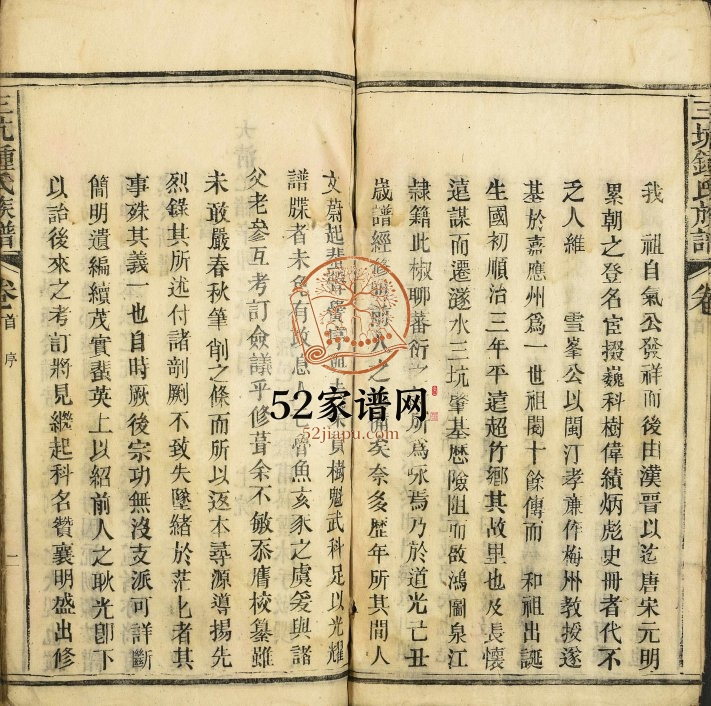 三坑鍾氏族譜 卷
我 祖自氣公發祥而後由漢晋以迄唐宋元明
累朝之登名宦掇巍科樹偉績炳彪史冊者代不
乏人維 雪峯公以閩汀孝亷作梅州教授遂
基於嘉應州爲一世祖閱十餘傳而 和祖出誕
生國初順治三年平遠超竹鄉其故里也及長懷
遠謀而遷遂水三坑肇基歴險阻而啟鴻圖泉江
隷籍此椒聊蕃衍之所爲咏焉乃於道光己丑
歲譜經修 之 矣奈多歴年所其間人
文蔚起 樹魁武科足以光耀
譜牒者未免有故息人亡魯魚亥豕之虞爰與諸
父老參互考訂僉議平修葺余不敏忝膺校纂雖
未敢嚴春秋筆削之條而所以返本尋源導揚先
烈錄其所述付諸剞劂不致失墜緒於茫匕者其
事殊其義一也自時厥後宗功無沒支派可詳斷
簡明遺編續茂實蜚英上以紹前人之耿光卽下
以詒後來之考訂將見繼起科名贊襄明盛出修
三坑鍾氏族譜 卷首 序 一
52家谱网
52jiapu.com